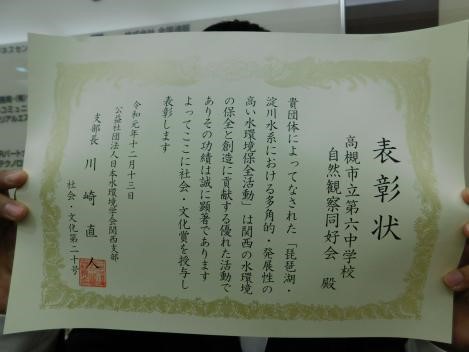 表彰状
高槻市立第六中学校
自然観察同好会 殿
貴団体によってなされた「琵琶湖・
淀川水系における多角的・発展性の
高い水環境保全活動」は関西の水環境
の保全と創造に貢献する優れた活動で
ありその功績は誠に顕著であります
よってここに社会・文化賞を授与し
表彰します
令和元年十二月十三日
公益社団法人日本水環境学会関西支部
支部長 川崎直人
社会・文化第二十号